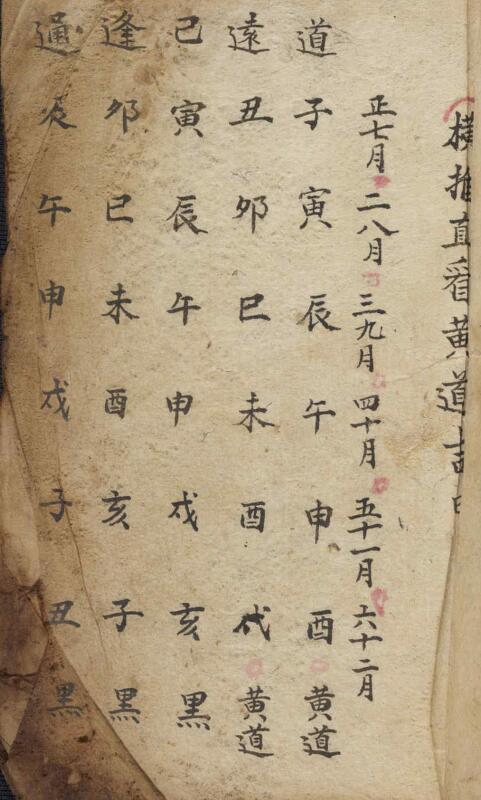 橫推直看黄道吉日
正七月 二八月 三九月 四十月 五十一月 六十二月
道 子 寅 辰 午 申 酉 黄道
遠 丑 夘 巳 未 酉 戌 黄道
己 寅 辰 午 申 戌 亥 黑
逢 夘 巳 未 酉 亥 子 黑
通 辰 午 申 戌 子 丑 黑